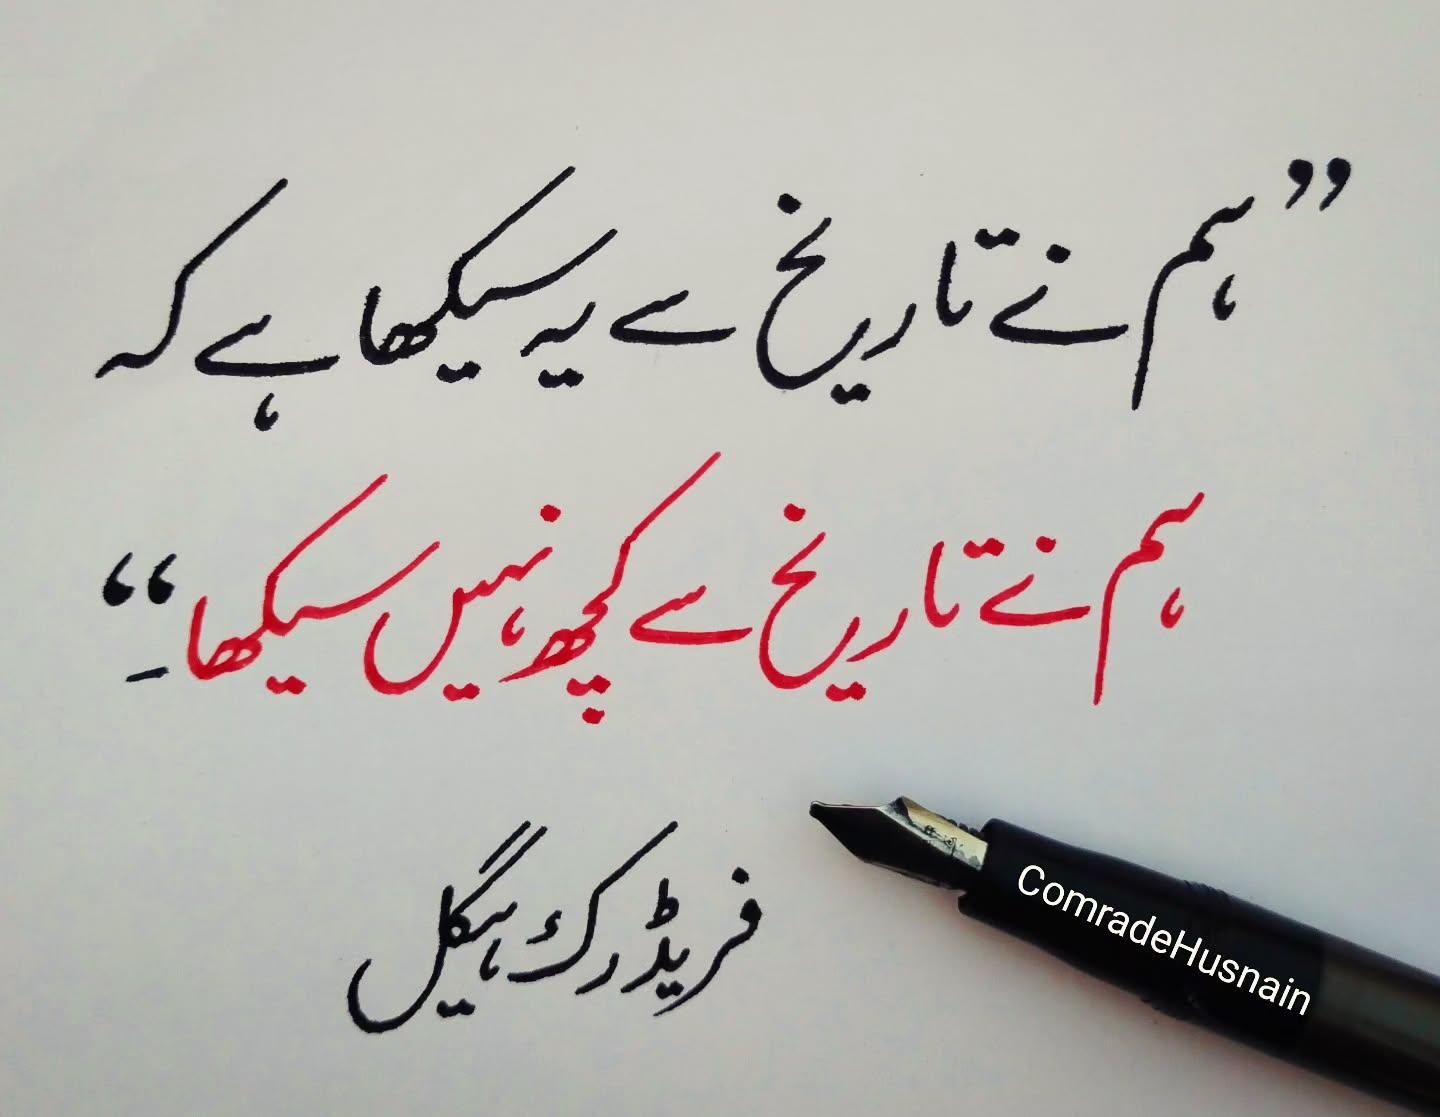 ”ہم نے تاریخ سے یہ سیکھا ہے کہ
ہم نے تاریخ سے کچھ نہیں سیکھا۔“
فریڈرک ہیگل
ComradeHusnain